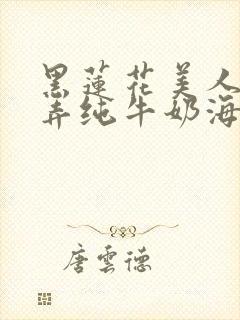 黑蓮花美人
弄纯牛奶海
唐雲德